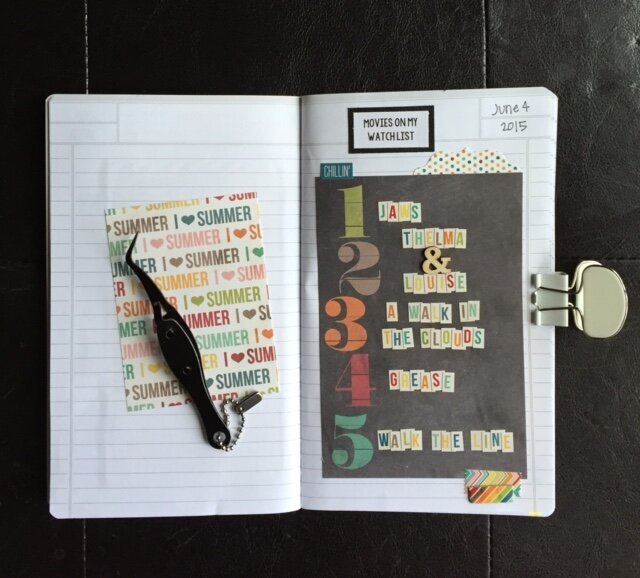 SUMMER I ❤ SUMMER
I ❤ SUMMER I ❤
SUMMER I ❤ SUMMER
I ❤ SUMMER I ❤
SUMMER I ❤ SUMMER
SUMMER I ❤
SUMMER I ❤ SUMMER
SUMMER I ❤
SUMMER I ❤ SUMMER
MOVIES ON MY
WATCH LIST
June 4
2015
CHILLIN'
1 JAWS
2 THELMA
&
LOUISE
3 A WALK IN
THE CLOUDS
4 GREASE
5 WALK THE LINE